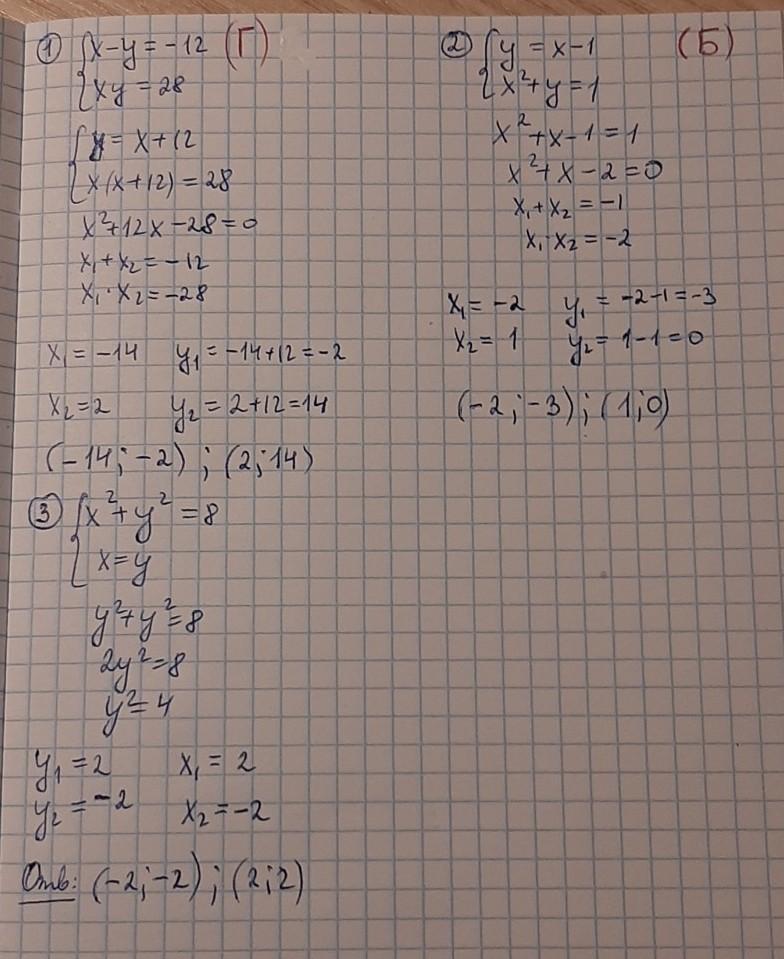 ① { x-y = -12 (Г)
xy = 28
{ y = x+12
x(x+12) = 28
x²+12x-28=0
x₁+x₂ = -12
x₁·x₂ = -28
x₁ = -14 y₁ = -14+12 = -2
x₂ = 2 y₂ = 2+12=14
(-14; -2) ; (2; 14)
② { y = x-1 (Б)
x²+y = 1
x²+x-1 = 1
x²+x-2=0
x₁+x₂ = -1
x₁·x₂ = -2
x₁ = -2 y₁ = -2-1=-3
x₂ = 1 y₂ = 1-1=0
(-2; -3); (1; 0)
③ { x²+y² = 8
x=y
y²+y²=8
2y²=8
y²=4
y₁ = 2 x₁ = 2
y₂ = -2 x₂ = -2
Отв: (-2; -2) ; (2; 2)